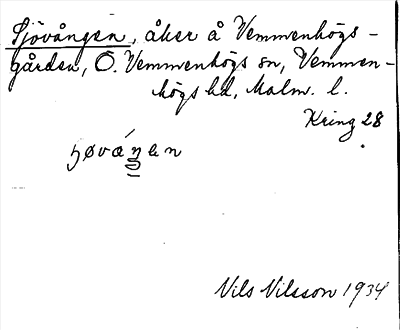 Sjövången, åker å Vemmenhögs-
gården, Ö. Vemmenhögs sn, Vemmen-
högs hd, Malm. l.
Kring 28
Nils Nilsson 1934